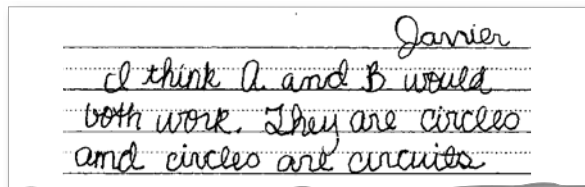 Javier
I think A and B would
both work. They are circles
and circles are circuits